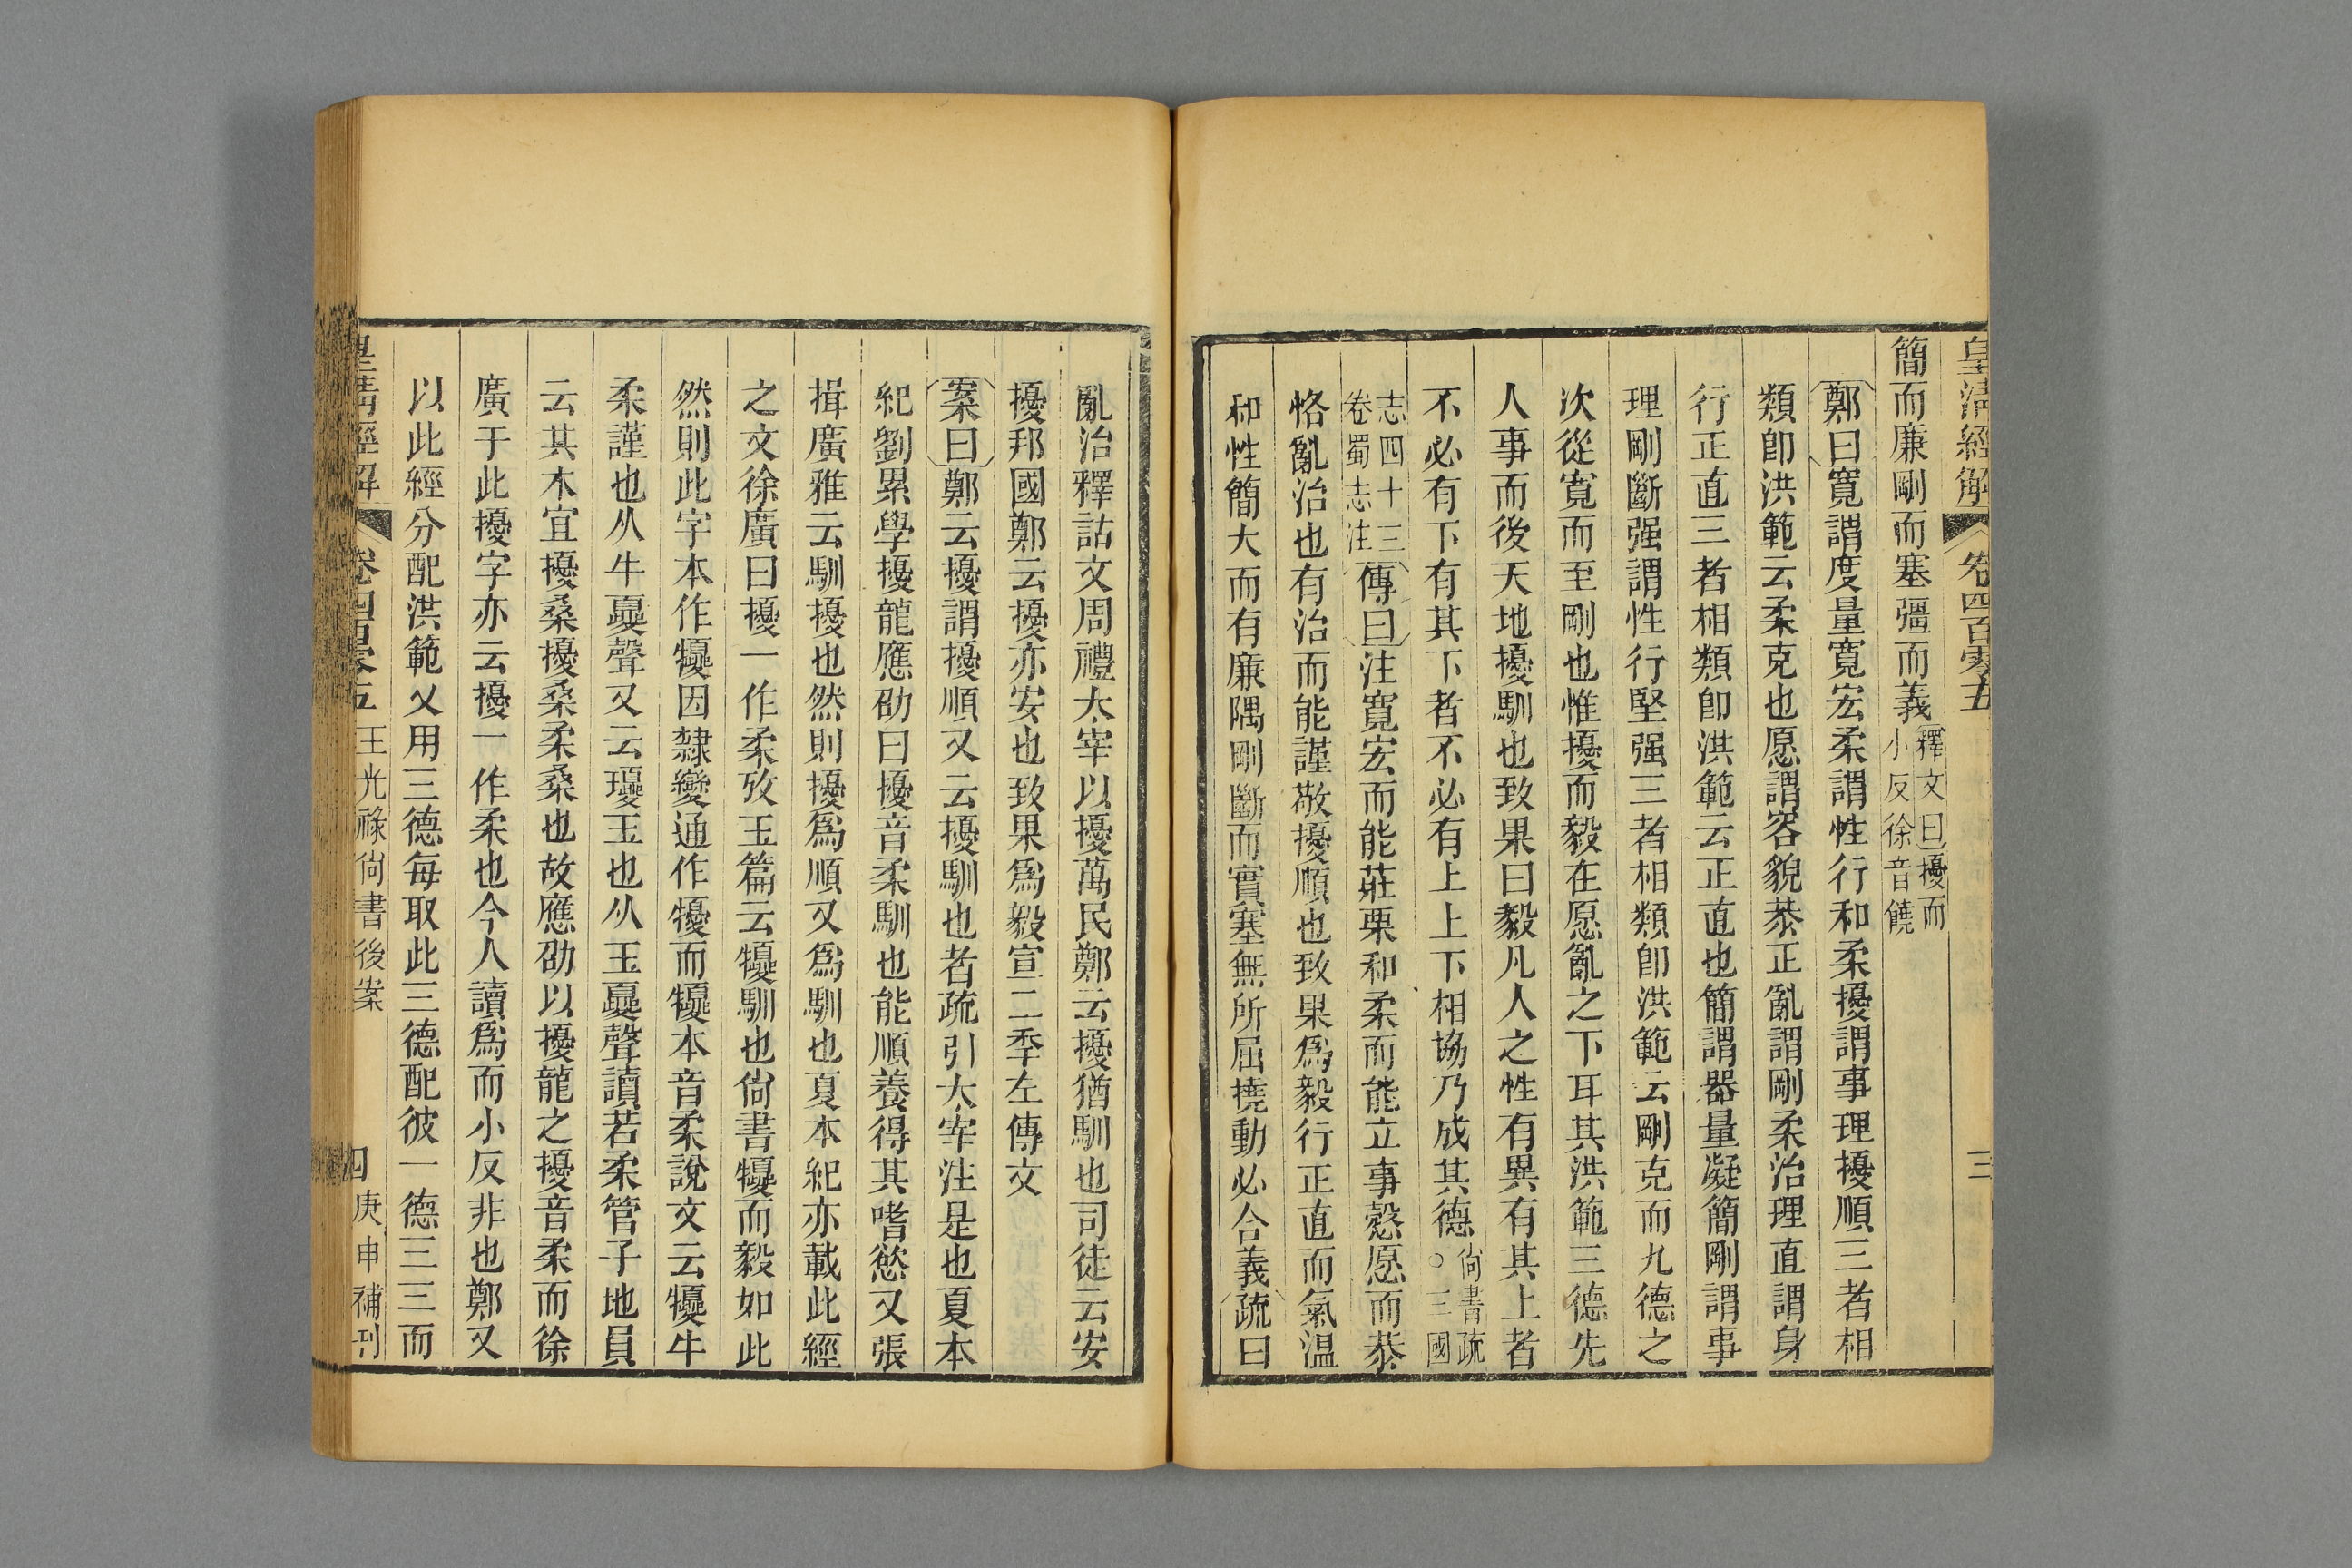 皇清經解 卷四百零五 三
簡而廉剛而塞彊而義釋文曰擾而小反徐音饒
鄭曰寬謂度量寬宏柔謂性行和柔擾謂事理擾順三者相
類卽洪範云柔克也愿謂容貌恭正亂謂剛柔治理直謂身
行正直三者相類卽洪範云正直也簡謂器量凝簡剛謂事
理剛斷强謂性行堅强三者相類卽洪範云剛克而九德之
次從寬而至剛也惟擾而毅在愿亂之下耳其洪範三德先
人事而後天地擾馴也致果曰毅凡人之性有異有其上者
不必有下有其下者不必有上上下相協乃成其德尙書疏○三國
志四十三卷蜀志注傳曰注寬宏而能莊栗和柔而能立事慤愿而恭
恪亂治也有治而能謹敬擾順也致果爲毅行正直而氣温
和性簡大而有廉隅剛斷而實塞無所屈撓動必合義疏曰
亂治釋詁文周禮大宰以擾萬民鄭云擾猶馴也司徒云安
擾邦國鄭云擾亦安也致果爲毅宣二季左傳文
案曰鄭云擾謂擾順又云擾馴也者疏引大宰注是也夏本
紀劉累學擾龍應劭曰擾音柔馴也能順養得其嗜慾又張
揖廣雅云馴擾也然則擾爲順又爲馴也夏本紀亦載此經
之文徐廣曰擾一作柔攷玉篇云犪馴也尙書犪而毅如此
然則此字本作犪因隸變通作擾而犪本音柔說文云犪牛
柔謹也从牛夒聲又云瓇玉也从玉夒聲讀若柔管子地員
云其木宜擾桑擾桑柔桑也故應劭以擾龍之擾音柔而徐
廣于此擾字亦云擾一作柔也今人讀爲而小反非也鄭又
以此經分配洪範乂用三德每取此三德配彼一德三三而
皇清經解 卷四百零五 王光祿尙書後案 四 庚申補刊